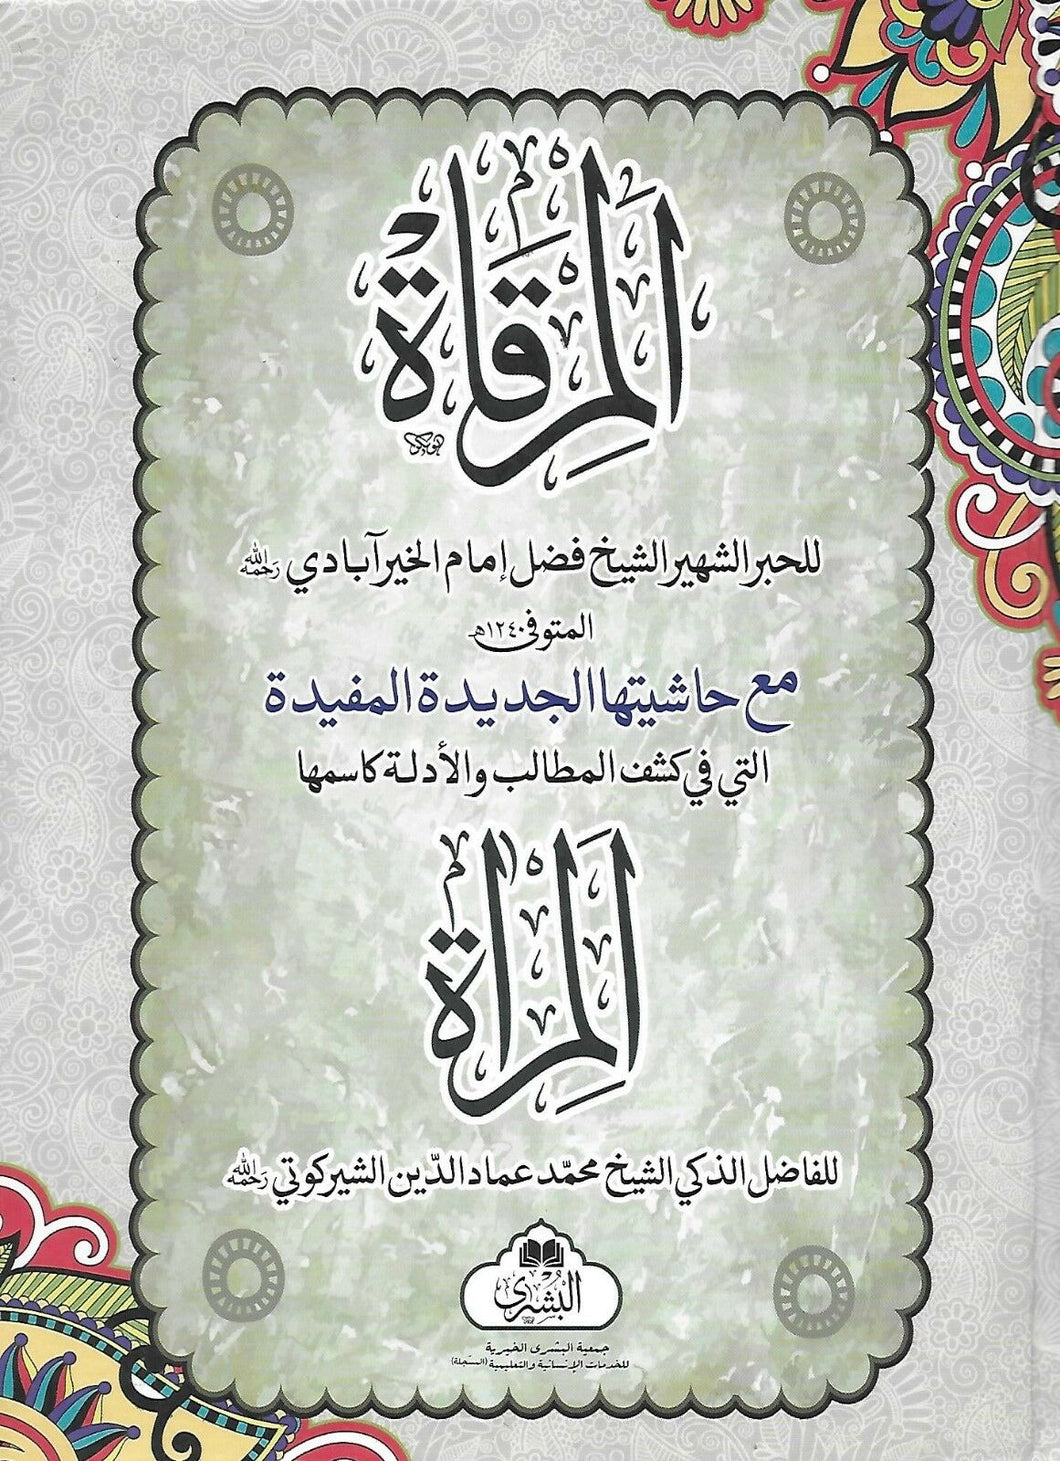 المرقاة
للحبر الشهير الشيخ فضل إمام الخيرآبادي رحمه الله
المتوفى ١٢٤٠هـ
مع حاشيتها الجديدة المفيدة
التي في كشف المطالب والأدلة كاسمها
المرأة
للفاضل الذكي الشيخ محمّد عماد الدّين الشيركوتي رحمه الله
البشرى
جمعية البشرى الخيرية
للخدمات الإنسانية والتعليمية (المسجّلة)